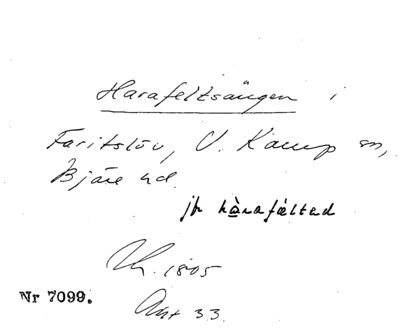 Harafeltsängen i
Faritslöv, V. Karup sn,
Bjäre hd.
jfr hàrafälted
1805
Nr 7099.
Akt 33